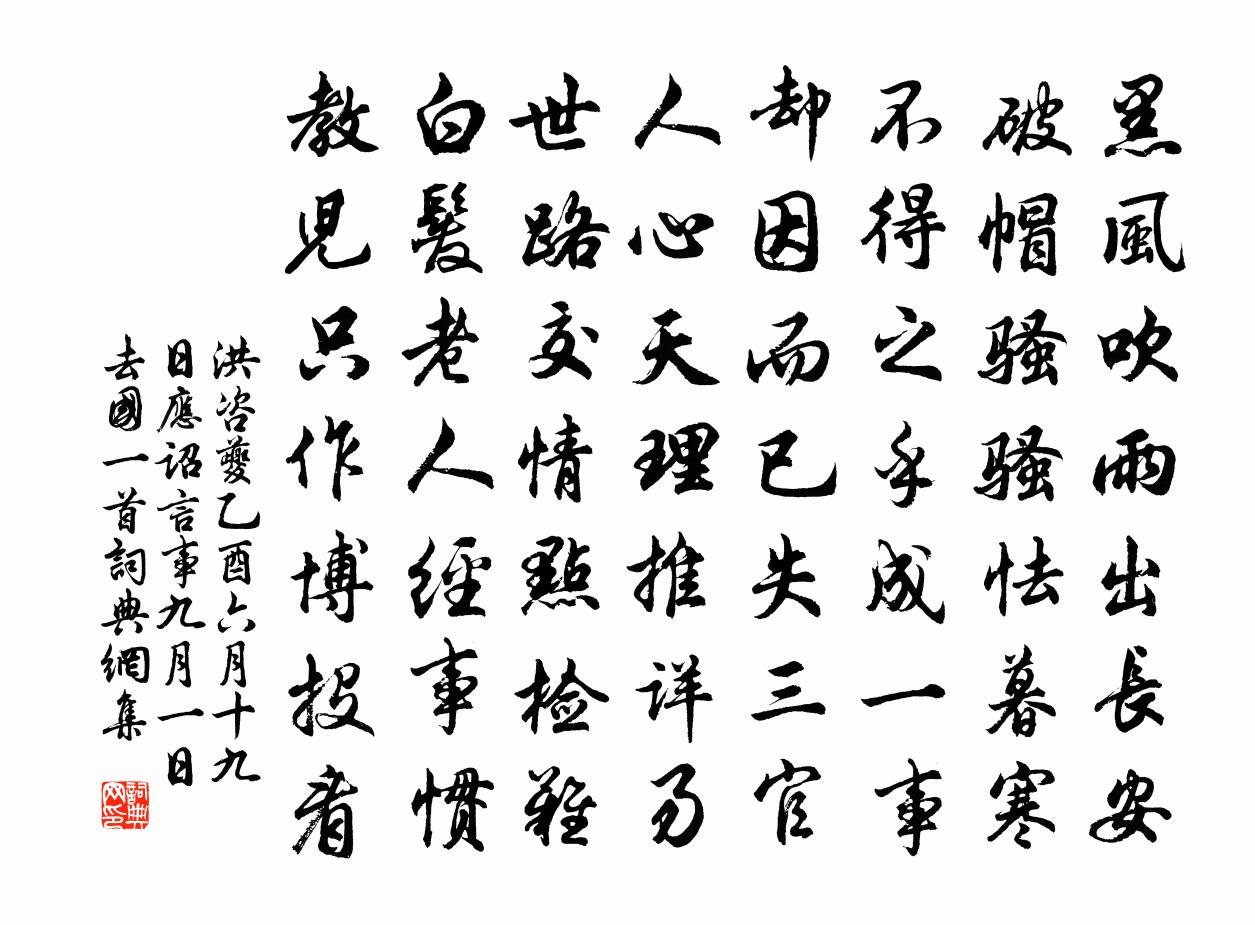 黑風吹雨出長安
破帽骚骚怯暮寒
不得之乎成一事
却因而已失三官
人心天理推详易
世路交情點检難
白髮老人經事慣
教兒只作博投看
洪咨夔乙酉六月十九
日應詔言事九月一日
去國一首詞典網集
詞典
网印